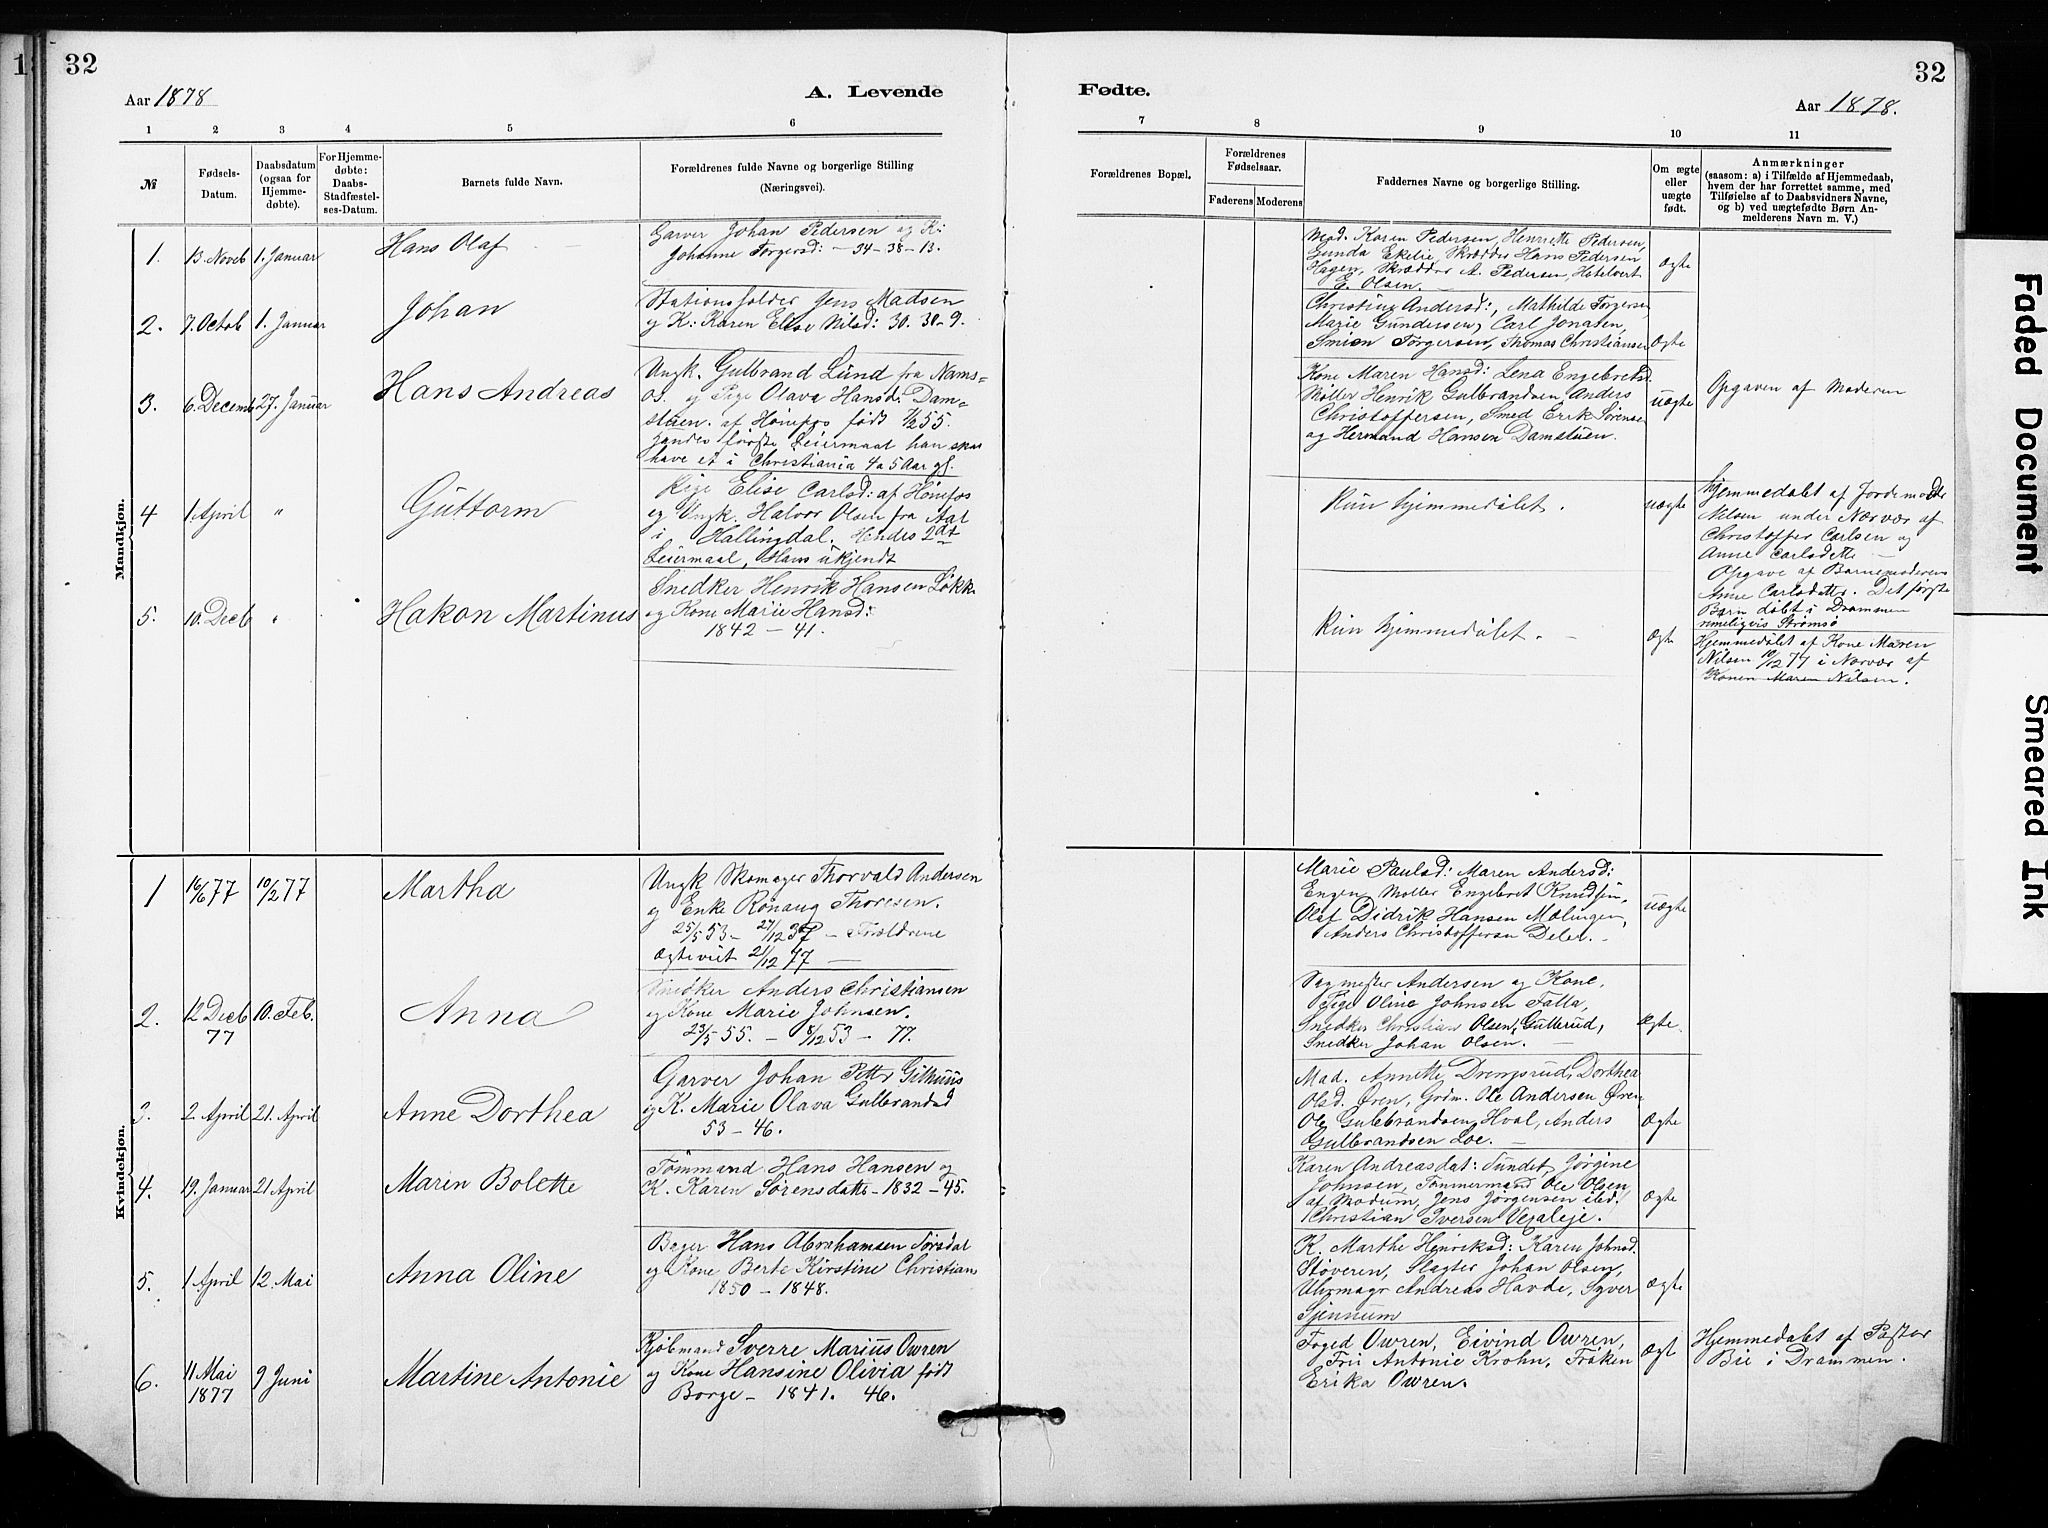 32
Aar 1878
A. Levende
1 2 3 4 5 6
№
Fødsels-
Datum.
Daabsdatum
(ogsaa for
Hjemme-
døbte).
For Hjemme-
døbte:
Daabs-
Stadfæstel-
ses-Datum.
Barnets fulde Navn.
Forældrenes fulde Navne og borgerlige Stilling
(Næringsvei).
Mandkjøn.
1. 13. Novb 1. Januar Hans Olaf
Garver Johan Pedersen og K:
Johanne Torgersd: – 34 – 38 – 13.
2. 7. Octob 1. Januar Johan
Stationsholder Jens Madsen
og K: Karen Elise Nilsd: 30. 30 – 9.
3. 6. Decemb 27. Januar Hans Andreas
Ungk. Gulbrand Lund fra Nams=
os. og Pige Olava Hansd. Dam=
stuen. af Hønefos født 55.
første Leiermaal han skal
have et i Christiania 4 a 5 Aar gl.
4 1. April " Guttorm
Pige Elise Carlsd: af Hønefos
og Ungk. Halvor Olsen fra Aal
i Hallingdal. Hendes 2det
Leiermaal, Hans ukjendt
5. 10. Decb " Hakon Martinus
Snedker Henrik Hansen Løkke
og Kone Marie Hansd:
1842 – 41.
Kvindekjøn.
1 16/6 77 10/2 77 Martha
Ungk Skomager Thorvald Andersen
og Enke Rønaug Thoresen.
25/5 53 – 27/12 37 – Forældrene
Ægteviet 21/12 77 –
2. 12 Decb 77 10. Feb. Anna
Snedker Anders Christiansen
og Kone Marie Johnsen.
23/5 55. – 8/12 53 – 77.
3. 2. April 21. April Anne Dorthea
Garver Johan Petter Githuus
og K. Marie Olava Gulbrandsd
53 – 46.
4. 19. Januar 21 April Maren Bolette
Tømmand Hans Hansen og
K. Karen Sørensdatter – 1832 – 45.
5. 1 April 12. Mai Anna Oline
Bager Hans Abrahamsen Sørsdal
og Kone Berte Kirstine Christian
1850 – 1848.
6. 11 Mai 1877 9 Juni Martine Antonie
Kjøbmand Sverre Marius Owren
og Kone Hansine Olivia født
Borge – 1841. 46.
32
Fødte.
Aar 1878.
7 8 9 10 11
Forældrenes Bopæl.
Forældrenes
Fødselsaar.
Faderens Moderens
Faddernes Navne og borgerlige Stilling.
Om ægte
eller
uægte
født.
Anmærkninger
(saasom: a) i Tilfælde af Hjemmedaab,
hvem der har forrettet samme, med
Tilføielse af to Daabsvidners Navne,
og b) ved uægtefødte Børn An-
melderens Navn m. V.)
Mad. Karen Pedersen, Henriette Pedersen,
Gunda Ekelie, Skrædder Hans Pedersen
Hagen, Skrædder A. Pedersen,
E. Olsen. –
Ægte
Christine Andersd:, Mathilde Torgersen
Marie Gundersen, Carl Jonasen,
Simien Torgersen, Thomas Christiansen
Ægte
Kone Maren Hansd: Lena Engebretsd.
Møller Henrik Gulbrandsen Anders
Christoffersen, Smed Erik Sørensen
og Hermand Hansen Damstuen.
uægte
Opgaven af Moderen
Kun hjemmedøbt.
uægte
Hjemmedøbt af Jordemoder
Nilsen under Nærvær af
Christoffer Carlsen og
Anne Carlsdatter –
Opgave af Barnemoderen
Anne Carlsdatter. Det første
Barn døbt i Drammen
rimeligvis Strømsø
Kun hjemmedøbt. –
Ægte
Hjemmedøbt af Kone Maren
Nilsen 10/12 77 i Nærvær af
Konen Maren Nilsen.
Marie Paulsd: Maren Andersd:
Engen Møller Engebret Knudsen,
Olaf Didrik Hansen Molingen,
Anders Christoffersen Deler. –
uægte
Sagmester Andersen og Kone.
Pige Oline Johnsen Falla,
Snedker Christian Olsen, Gutterud,
Snedker Johan Olsen. –
Ægte.
Mad. Annette Drengsrud, Dorthea
Olsd. Øren, Grdm. Ole Andersen Øren
Ole Gulbrandsen Hval, Anders
Gulbrandsen Loe. –
Ægte
Karen Andreasdat: Tundet, Jørgine
Johnsen, Tømmermand Ole Olsen
af Modum, Jens Jørgensen ibd:
Christian Iversen Vexaleje.
Ægte
K. Marthe Henriksd: Karen Johnsd.
Støveren, Slagter Johan Olsen,
Uhrmagr Andreas Havde, Syver
Sjennum
Ægte
Foged Owren, Eivind Owren,
Fru Antonie Krohn, Frøken
Erika Owren.
Ægt
Hjemmedøbt af Pastor
Bie i Drammen.
Faded Document
Smeared Ink